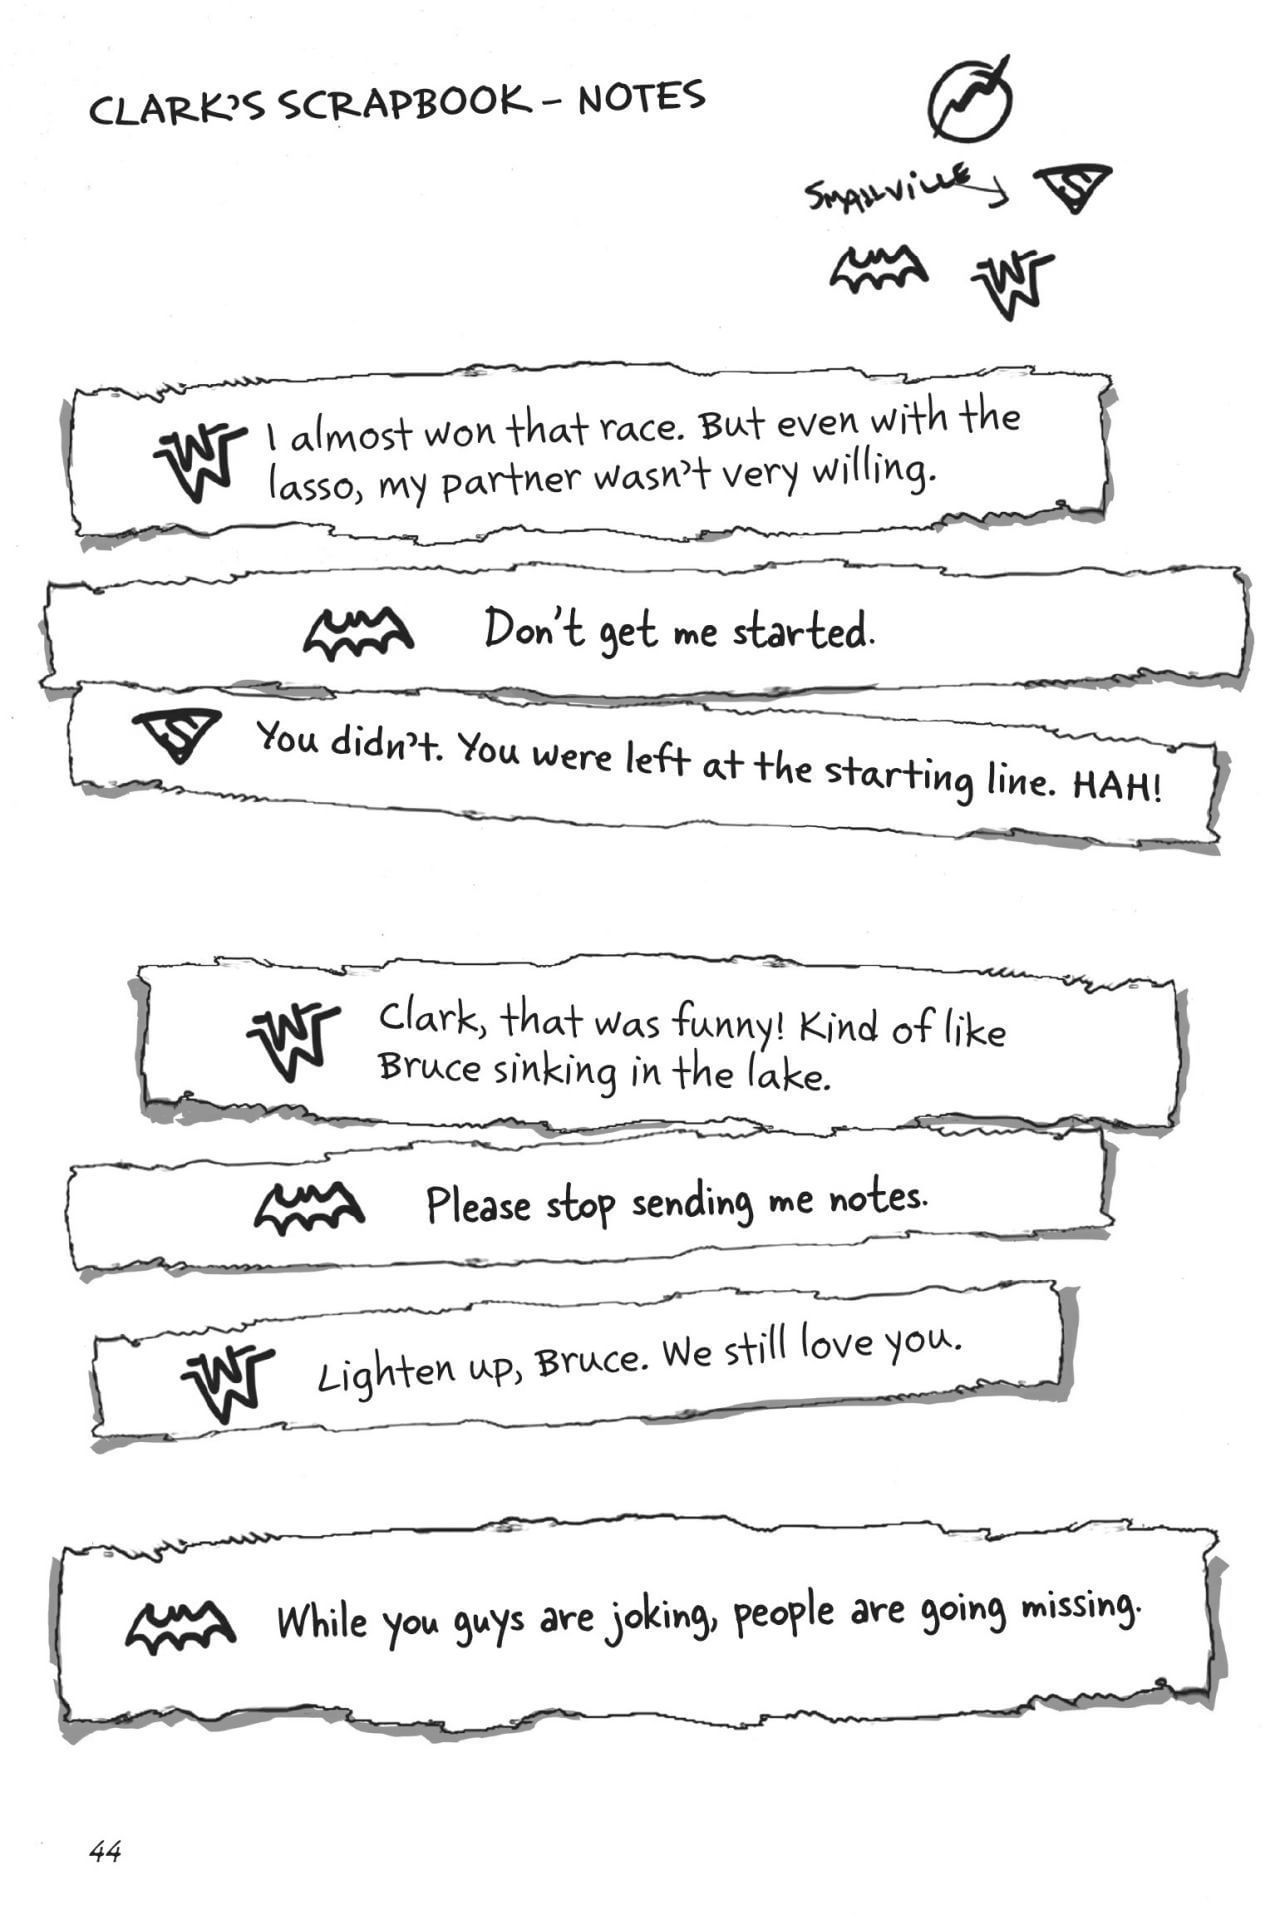 CLARK'S SCRAPBOOK - NOTES
SMALLVILLE
I almost won that race. But even with the
lasso, my partner wasn't very willing.
Don't get me started.
You didn't. You were left at the starting line. HAH!
Clark, that was funny! Kind of like
Bruce sinking in the lake.
Please stop sending me notes.
Lighten up, Bruce. We still love you.
While you guys are joking, people are going missing.
44